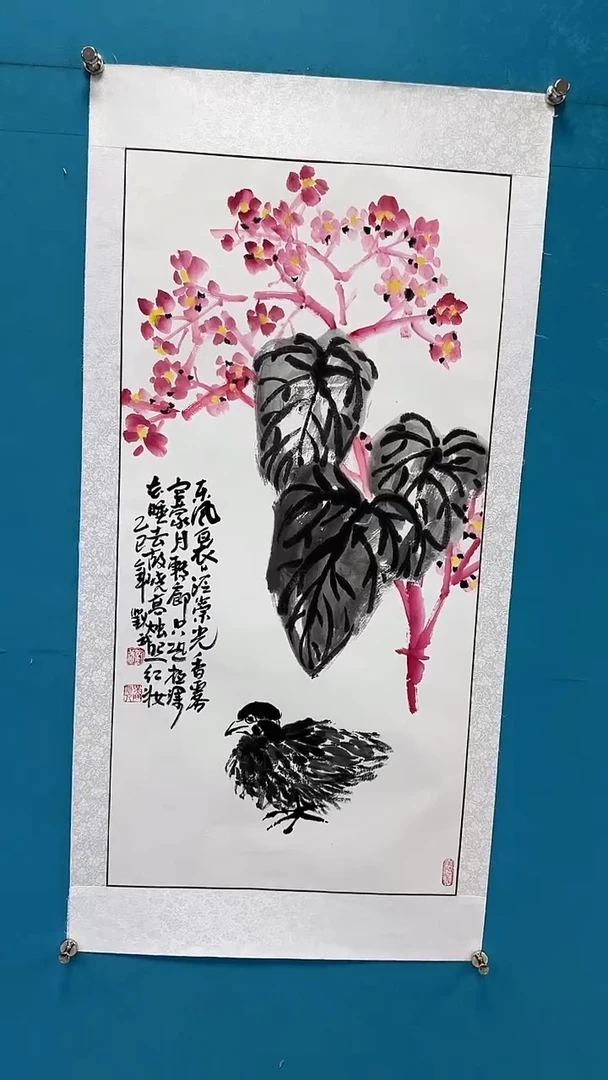 东风袅々泛崇光香雾
空蒙月转廊只恐夜深
花睡去故烧高烛照红妆
乙巳年